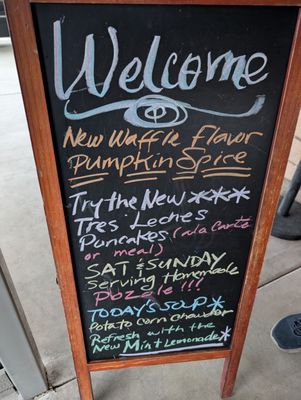 Welcome
New Waffle Flavor
Pumpkin Spice
Try the New ***
Tres Leches *
Pancakes (ala Carte
or meal)
SAT & SUNDAY
Serving Homemade
Pozole!!!
TODAY'S SOUP *
Potato corn chowder
Refresh with the
New Mint Lemonade *